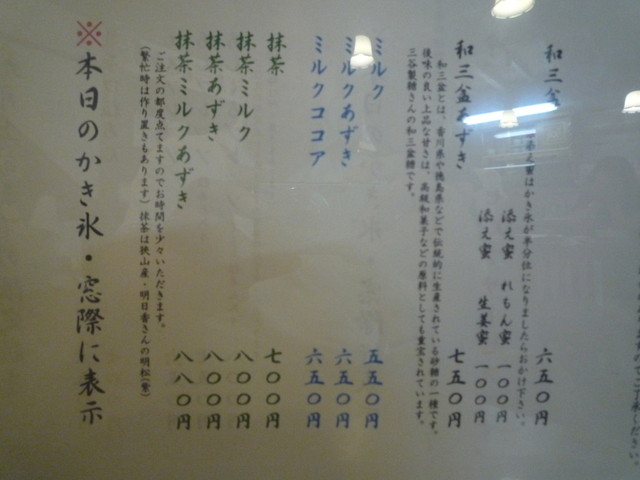 てご了承ください。
和三盆 六五〇円
添え蜜はかき氷が半分位になりましたらおかけ下さい。
添え蜜 れもん蜜 一〇〇円
添え蜜 生姜蜜 一〇〇円
和三盆あずき 七五〇円
和三盆とは、香川県や徳島県などで伝統的に生産されている砂糖の一種です。
後味の良い上品な甘さは、高級和菓子などの原料としても重宝されています。
三谷製糖さんの和三盆糖です。
ミルク 五五〇円
ミルクあずき 六五〇円
ミルクココア 六五〇円
抹茶 七〇〇円
抹茶ミルク 八〇〇円
抹茶あずき 八〇〇円
抹茶ミルクあずき 八八〇円
ご注文の都度点てますのでお時間を少々いただきます。
(繁忙時は作り置きもあります)抹茶は狭山産・明日香さんの明松(学)
※本日のかき氷・窓際に表示